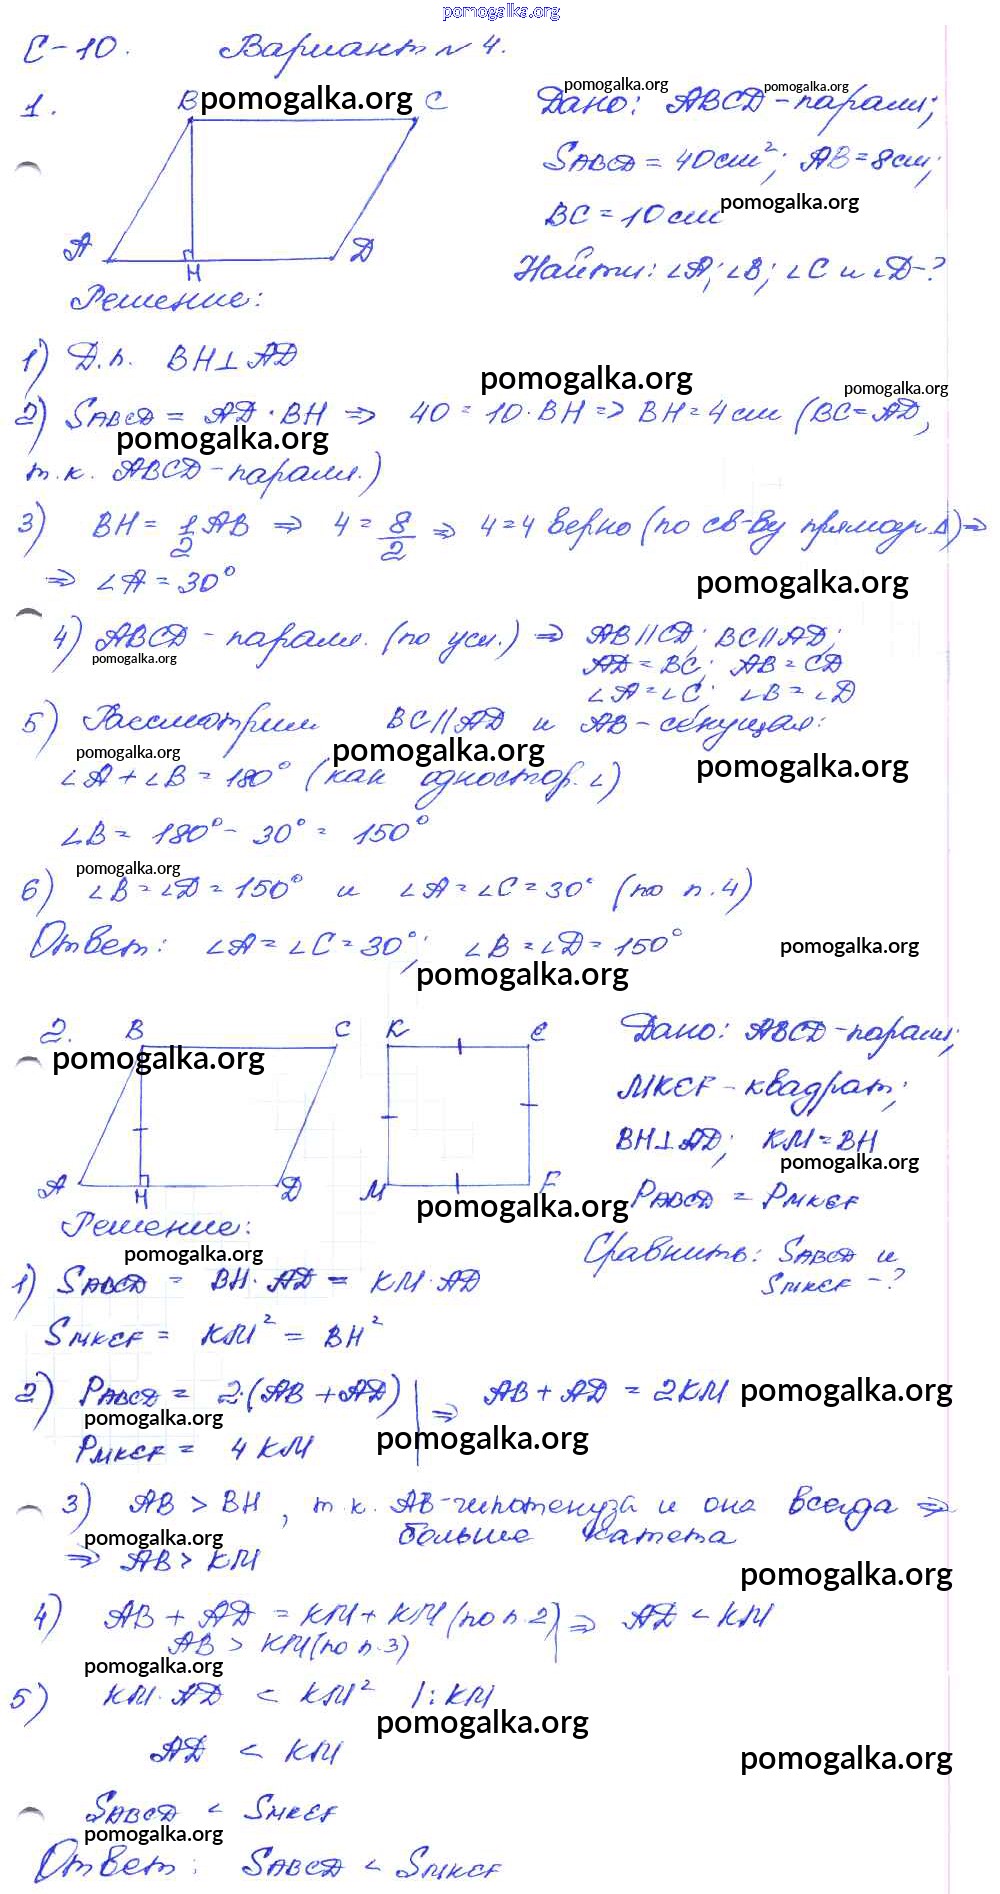 pomogalka.org
С-10. Вариант № 4.
1. B pomogalka.org C
pomogalka.org pomogalka.org
Дано: ABCD - паралл;
SABCD = 40 см²; AB = 8 см;
BC = 10 см pomogalka.org
A H D
Найти: ∠A; ∠B; ∠C и ∠D - ?
Решение:
1) Д.п. BH ⊥ AD
pomogalka.org pomogalka.org
2) SABCD = AD · BH ⇒ 40 = 10 · BH ⇒ BH = 4 см (BC = AD,
pomogalka.org
т.к. ABCD - паралл.)
3) BH = 1/2 AB ⇒ 4 = 8/2 ⇒ 4 = 4 верно (по св-ву прямоуг. Δ) ⇒
⇒ ∠A = 30° pomogalka.org
4) ABCD - паралл. (по усл.) ⇒ AB || CD; BC || AD;
pomogalka.org AD = BC; AB = CD
∠A = ∠C; ∠B = ∠D
5) Рассмотрим BC || AD и AB - секущая:
pomogalka.org pomogalka.org pomogalka.org
∠A + ∠B = 180° (как одностор. ∠)
∠B = 180° - 30° = 150°
pomogalka.org
6) ∠B = ∠D = 150° и ∠A = ∠C = 30° (по п. 4)
Ответ: ∠A = ∠C = 30°; ∠B = ∠D = 150° pomogalka.org
pomogalka.org
2. B C K E
pomogalka.org
Дано: ABCD - паралл;
MKEF - квадрат;
BH ⊥ AD; KM = BH
pomogalka.org
A H D M F
PABCD = PMKEF
pomogalka.org
Решение:
Сравнить: SABCD и
SMKEF - ?
pomogalka.org
1) SABCD = BH · AD = KM · AD
SMKEF = KM² = BH²
2) PABCD = 2·(AB + AD) | ⇒ AB + AD = 2KM pomogalka.org
pomogalka.org pomogalka.org
PMKEF = 4 KM
3) AB > BH, т.к. AB - гипотенуза и она всегда ⇒
pomogalka.org больше катета
⇒ AB > KM pomogalka.org
4) AB + AD = KM + KM (по п. 2) | ⇒ AD < KM
AB > KM (по п. 3)
pomogalka.org
5) KM · AD < KM² |: KM
pomogalka.org
AD < KM pomogalka.org
SABCD < SMKEF
pomogalka.org
Ответ: SABCD < SMKEF